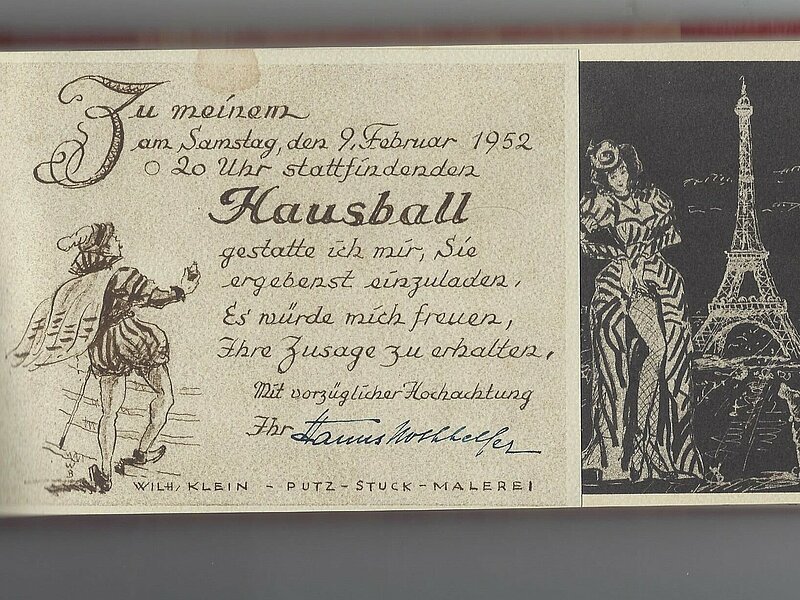 Zu meinem
am Samstag, den 9. Februar 1952
20 Uhr stattfindenden
Hausball
gestatte ich mir, Sie
ergebenst einzuladen.
Es würde mich freuen,
Ihre Zusage zu erhalten.
Mit vorzüglicher Hochachtung
Ihr Hanns
WILH. KLEIN - PUTZ-STUCK-MALEREI